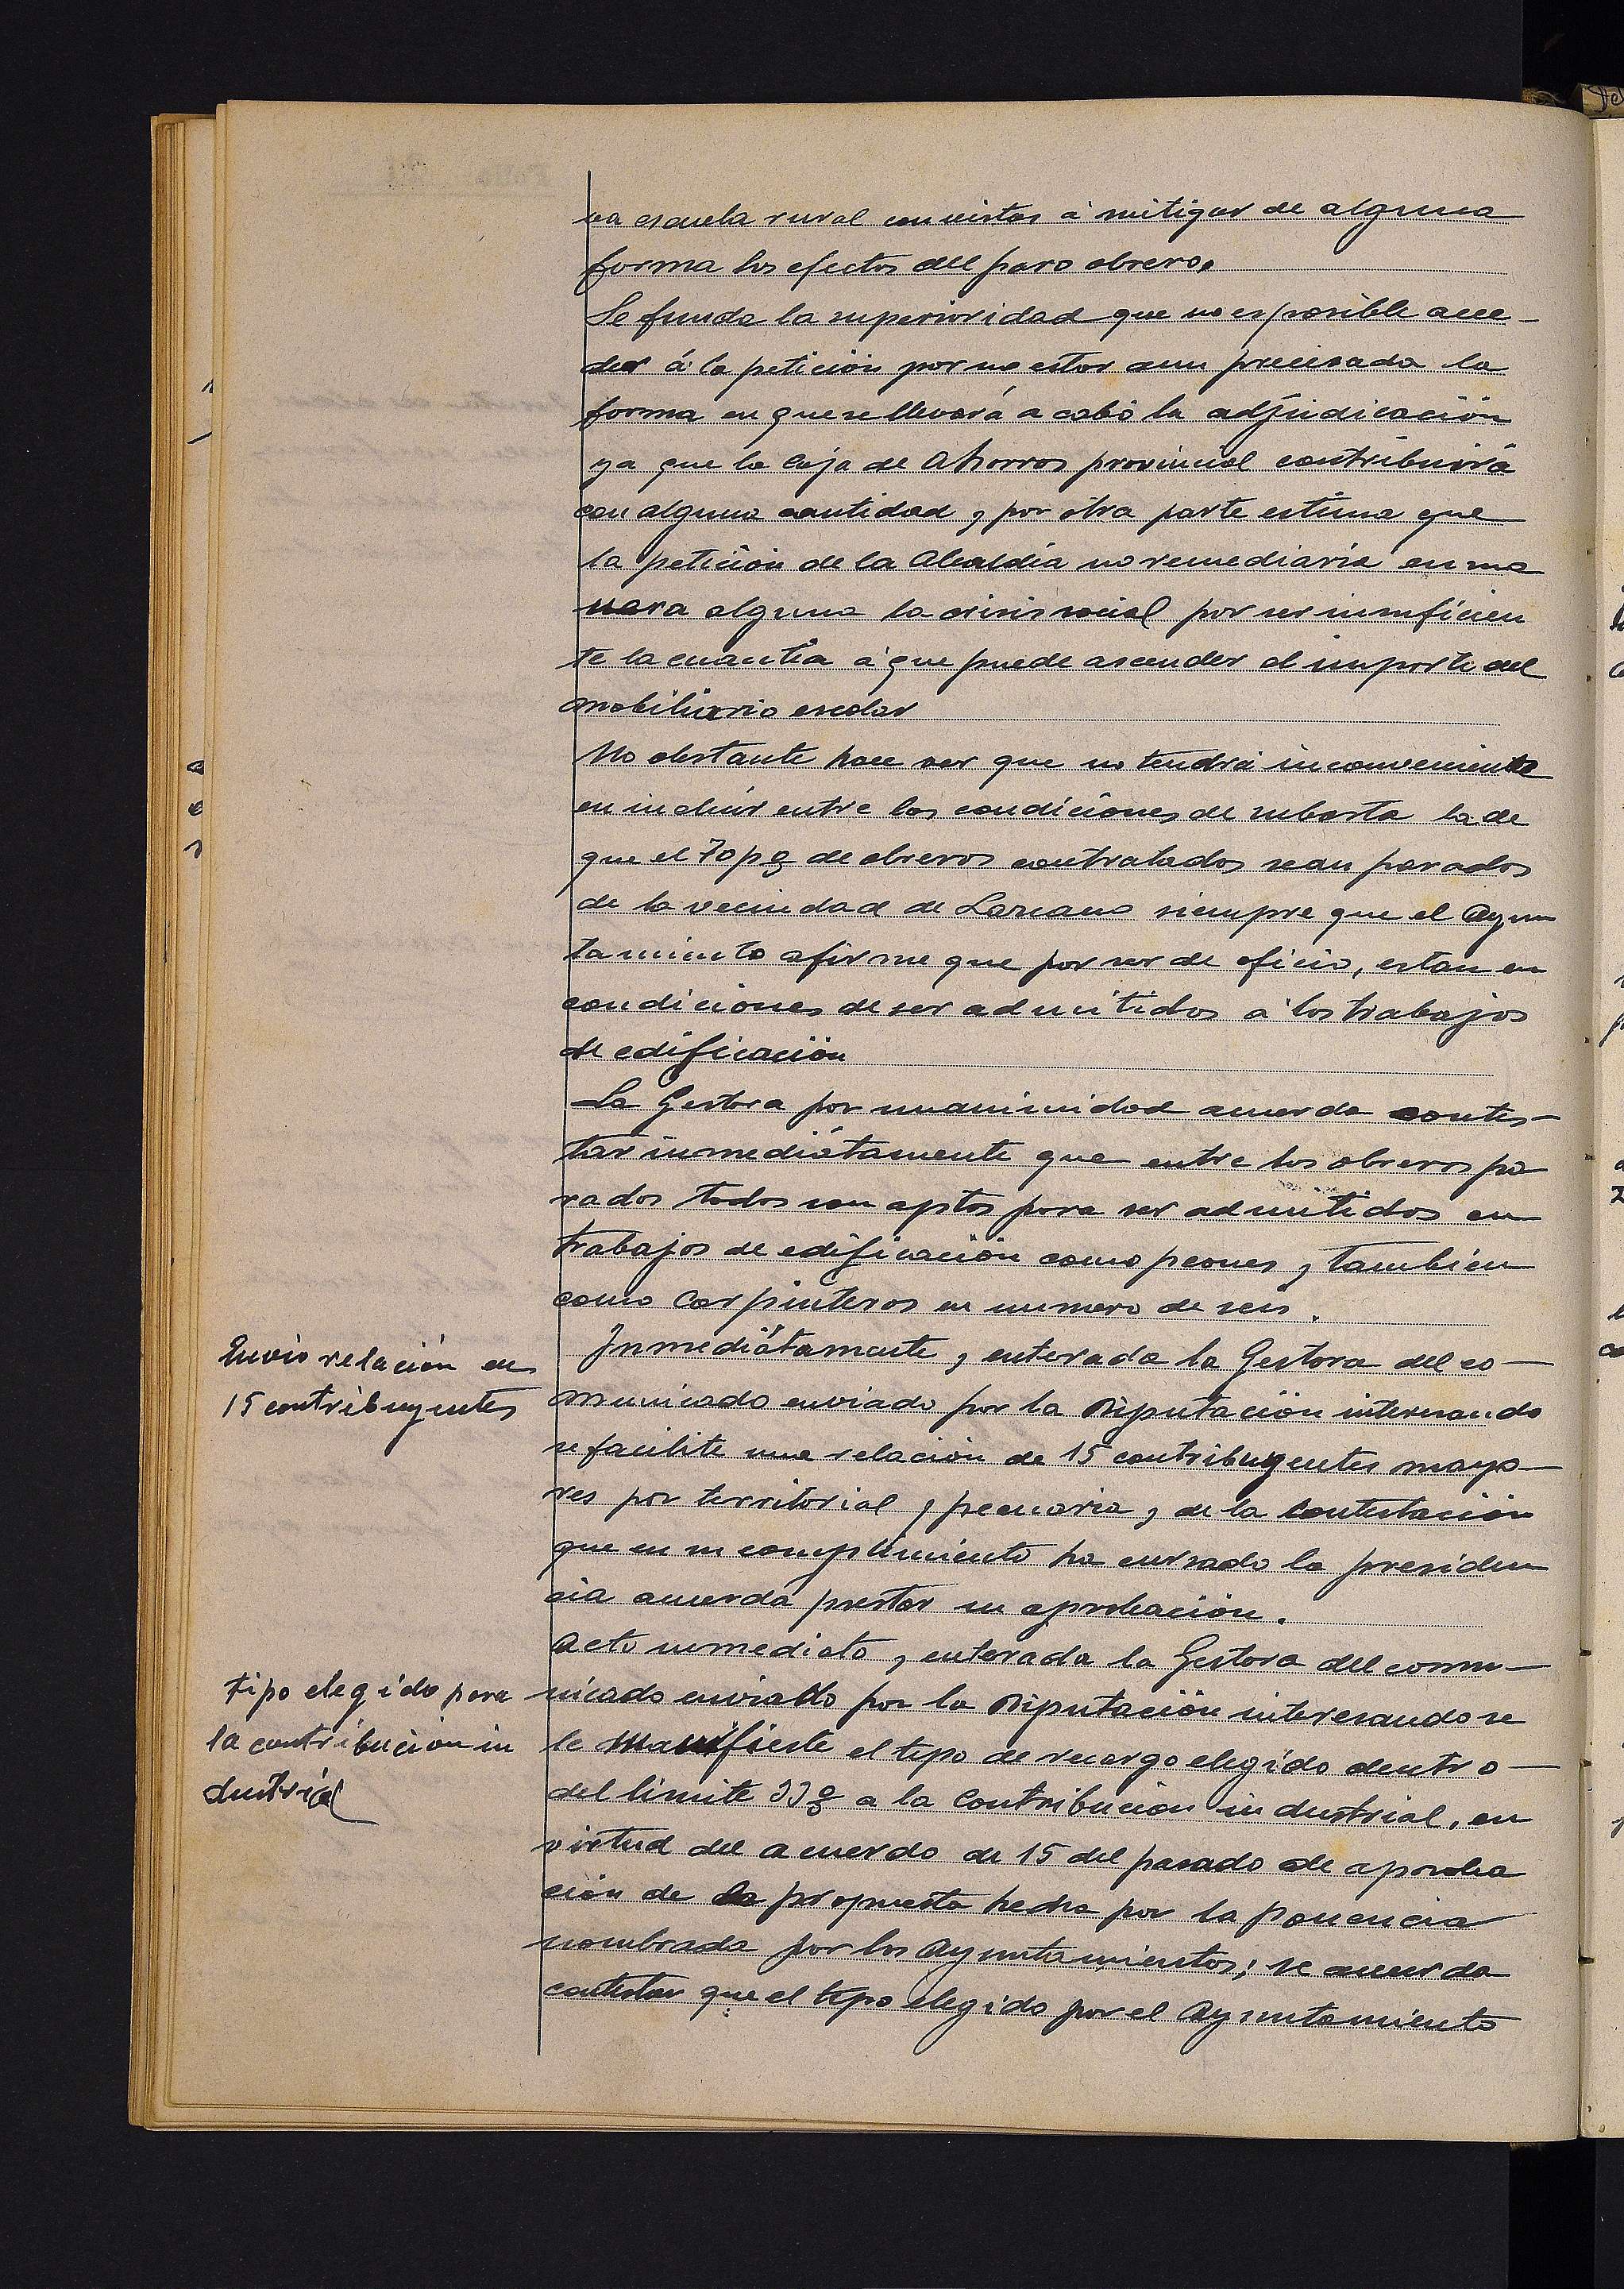 va escuela rural con vistas á mitigar de alguna
forma los efectos del paro obrero.
Se funda la superioridad que no es posible acce-
der á la petición por no estar aun precisada la
forma en que se llevará a cabo la adjudicación
ya que la Caja de Ahorros provincial contribuirá
con alguna cantidad y por otra parte estima que
la petición de la Alcaldía no remediaria en ma
nera alguna la crisis social por ser insuficien
te la cuantia á que puede ascender el importe del
mobiliario escolar
No obstante hace ver que no tendrá inconveniente
en incluir entre las condiciones de subasta la de
que el 70 p% de obreros contratados sean parados
de la vecindad de Lazcano siempre que el Ayun
tamiento afirme que por ser de oficio, estan en
condiciones de ser admitidos á los trabajos
de edificación
La Gestora por unanimidad acuerda contes-
tar inmediátamente que entre los obreros pa
rados todos son aptos para ser admitidos en
trabajos de edificación como peones y tambien
como Carpinteros en numero de seis.
Envio relación de
15 contribuyentes
Inmediátamente y enterada la Gestora del co-
municado enviado por la Diputación interesando
se facilite una relación de 15 contribuyentes mayo-
res por territorial y pecuaria y de la contestación
que en su cumplimiento ha cursado la presiden
cia acuerda prestar su aprobación.
tipo elegido para
la contribucion in
dustrial
Acto inmediato y enterada la Gestora del comu-
nicado enviado por la Diputación interesando se
le manifieste el tipo de recargo elegido dentro-
del limite 33% a la Contribucion industrial, en
virtud del acuerdo de 15 del pasado de aproba
ción de la propuesta hecha por la Ponencia
nombrada por los Ayuntamientos; se acuerda
contestar que el tipo elegido por el Ayuntamiento